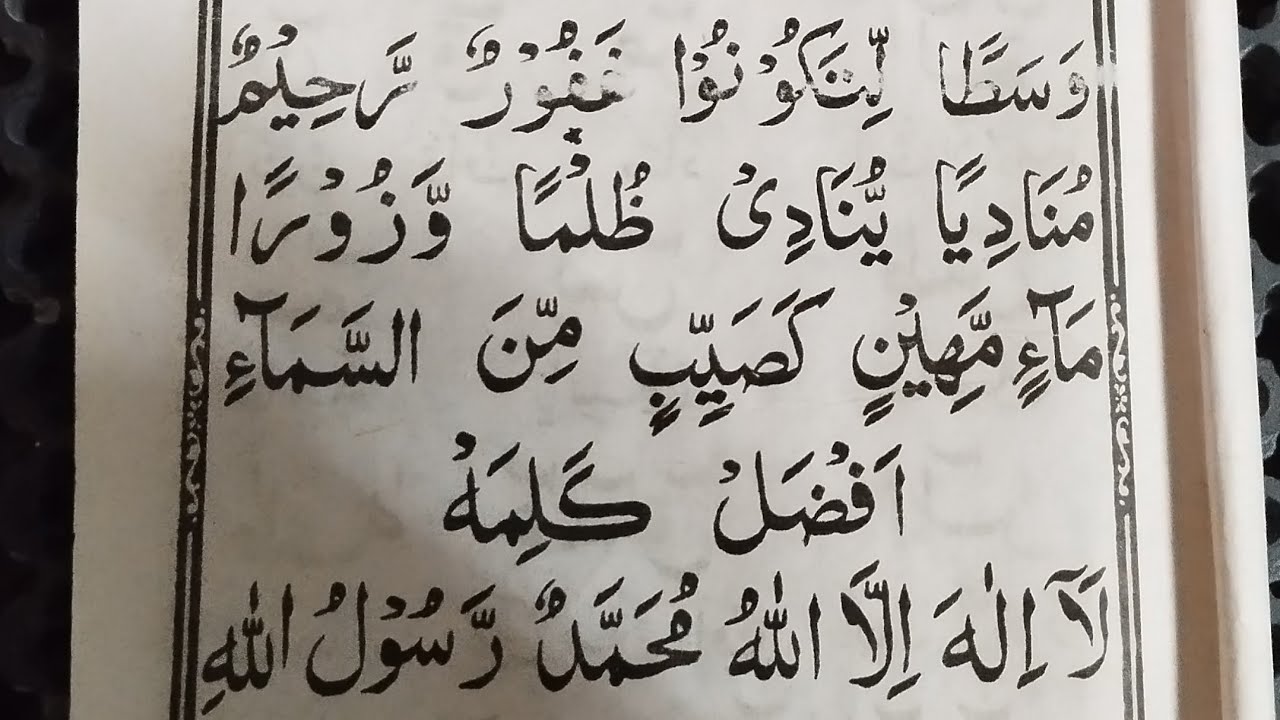 وَسَطًا لِّتَكُوْنُوْا غَفُوْرٌ رَّحِيْمٌ
مُنَادِيًا يُّنَادِىْ ظُلْمًا وَّزُوْرًا
مَآءٍ مَّهِيْنٍ كَصَيِّبٍ مِّنَ السَّمَآءِ
اَفْضَلْ كَلِمَهْ
لَآ اِلٰهَ اِلَّا اللّٰهُ مُحَمَّدٌ رَّسُوْلُ اللّٰهِ